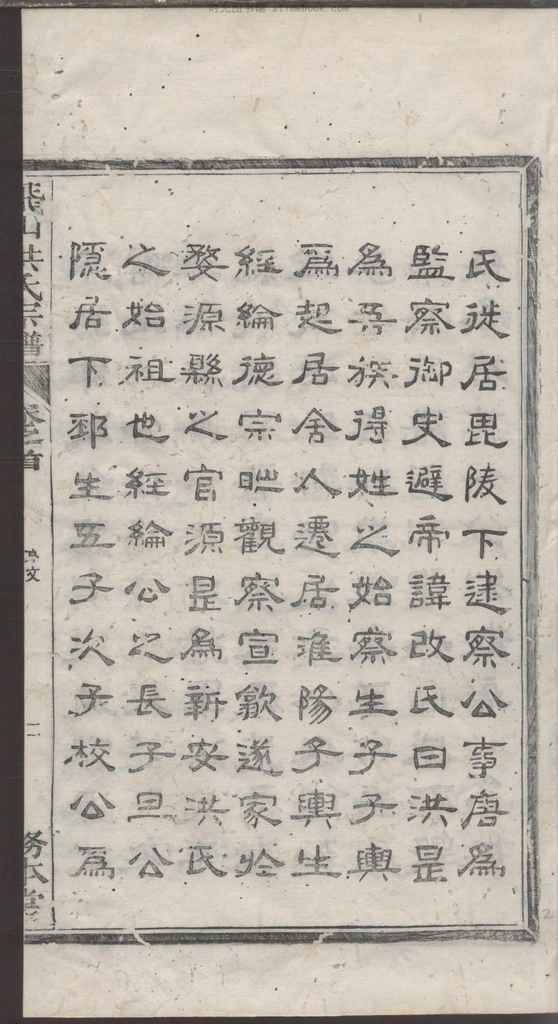 氏徙居毘陵下逮察公事唐爲
監察御史避帝諱改氏曰洪是
為吾族得姓之始察生子子輿
爲起居舍人遷居淮陽子輿生
經綸德宗時觀察宣歙遂家於
婺源縣之官源是為新安洪氏
之始祖也經綸公之長子旦公
隱居下邳生五子次子校公爲
山洪氏宗譜
卷之首
文
二
務本堂